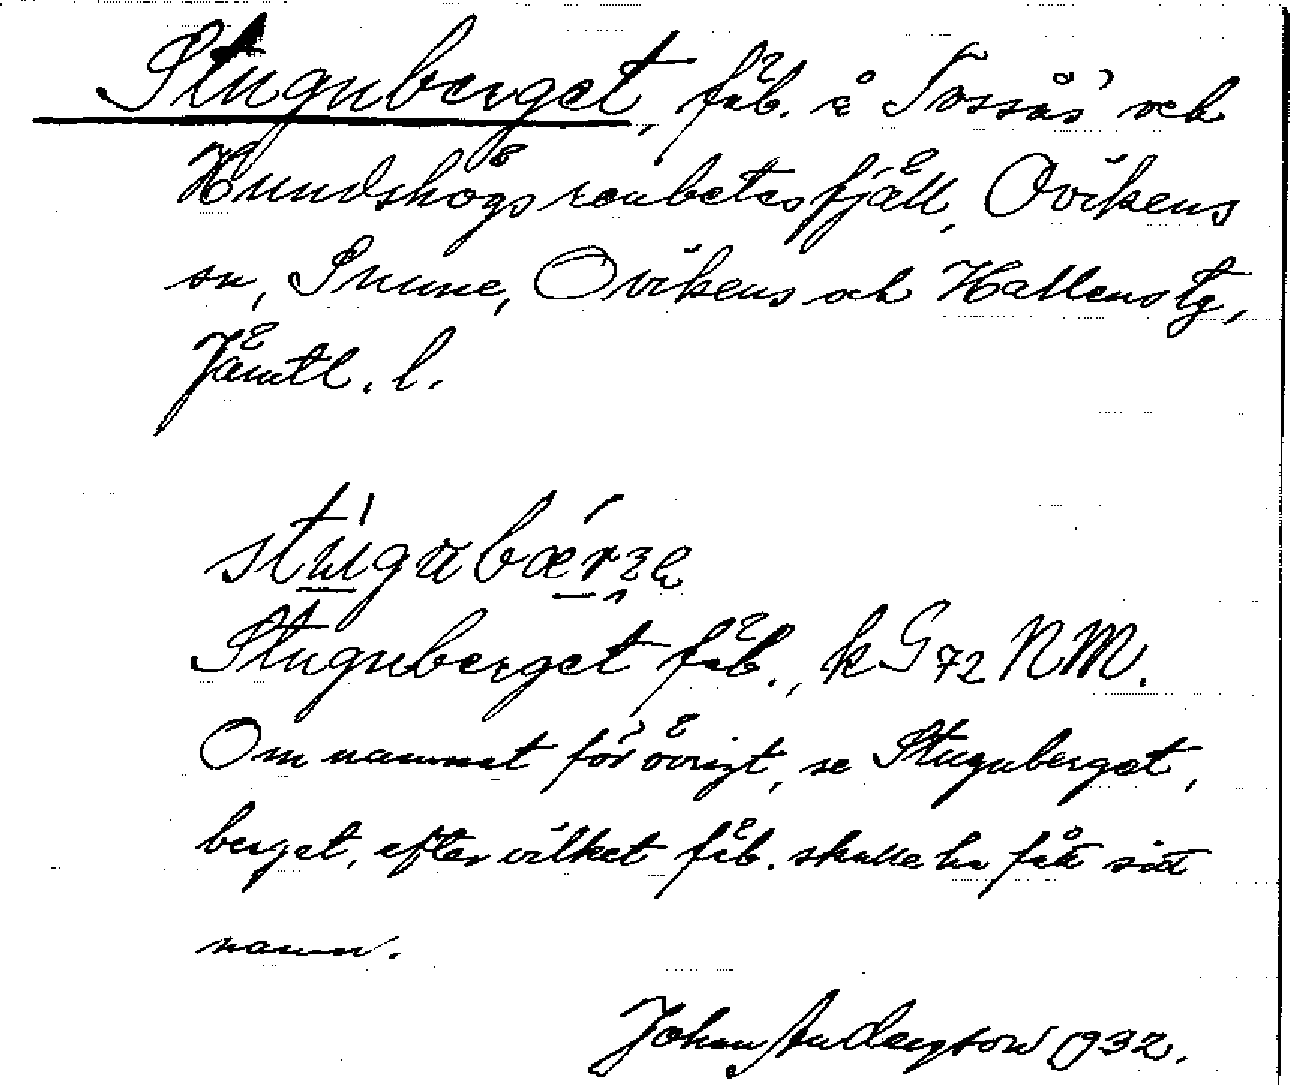 Stuguberget, fäb. å Tossås' och
Hundshögs renbetesfjäll, Ovikens
sn, Sunne, Ovikens och Hallens tg,
Jämtl. l.
Stuguberget fäb., kG72NM.
Om namnet för övrigt, se Stuguberget,
berget, efter vilket fäb. skulle ha fått sitt
namn.
Johan Andersson 1932.